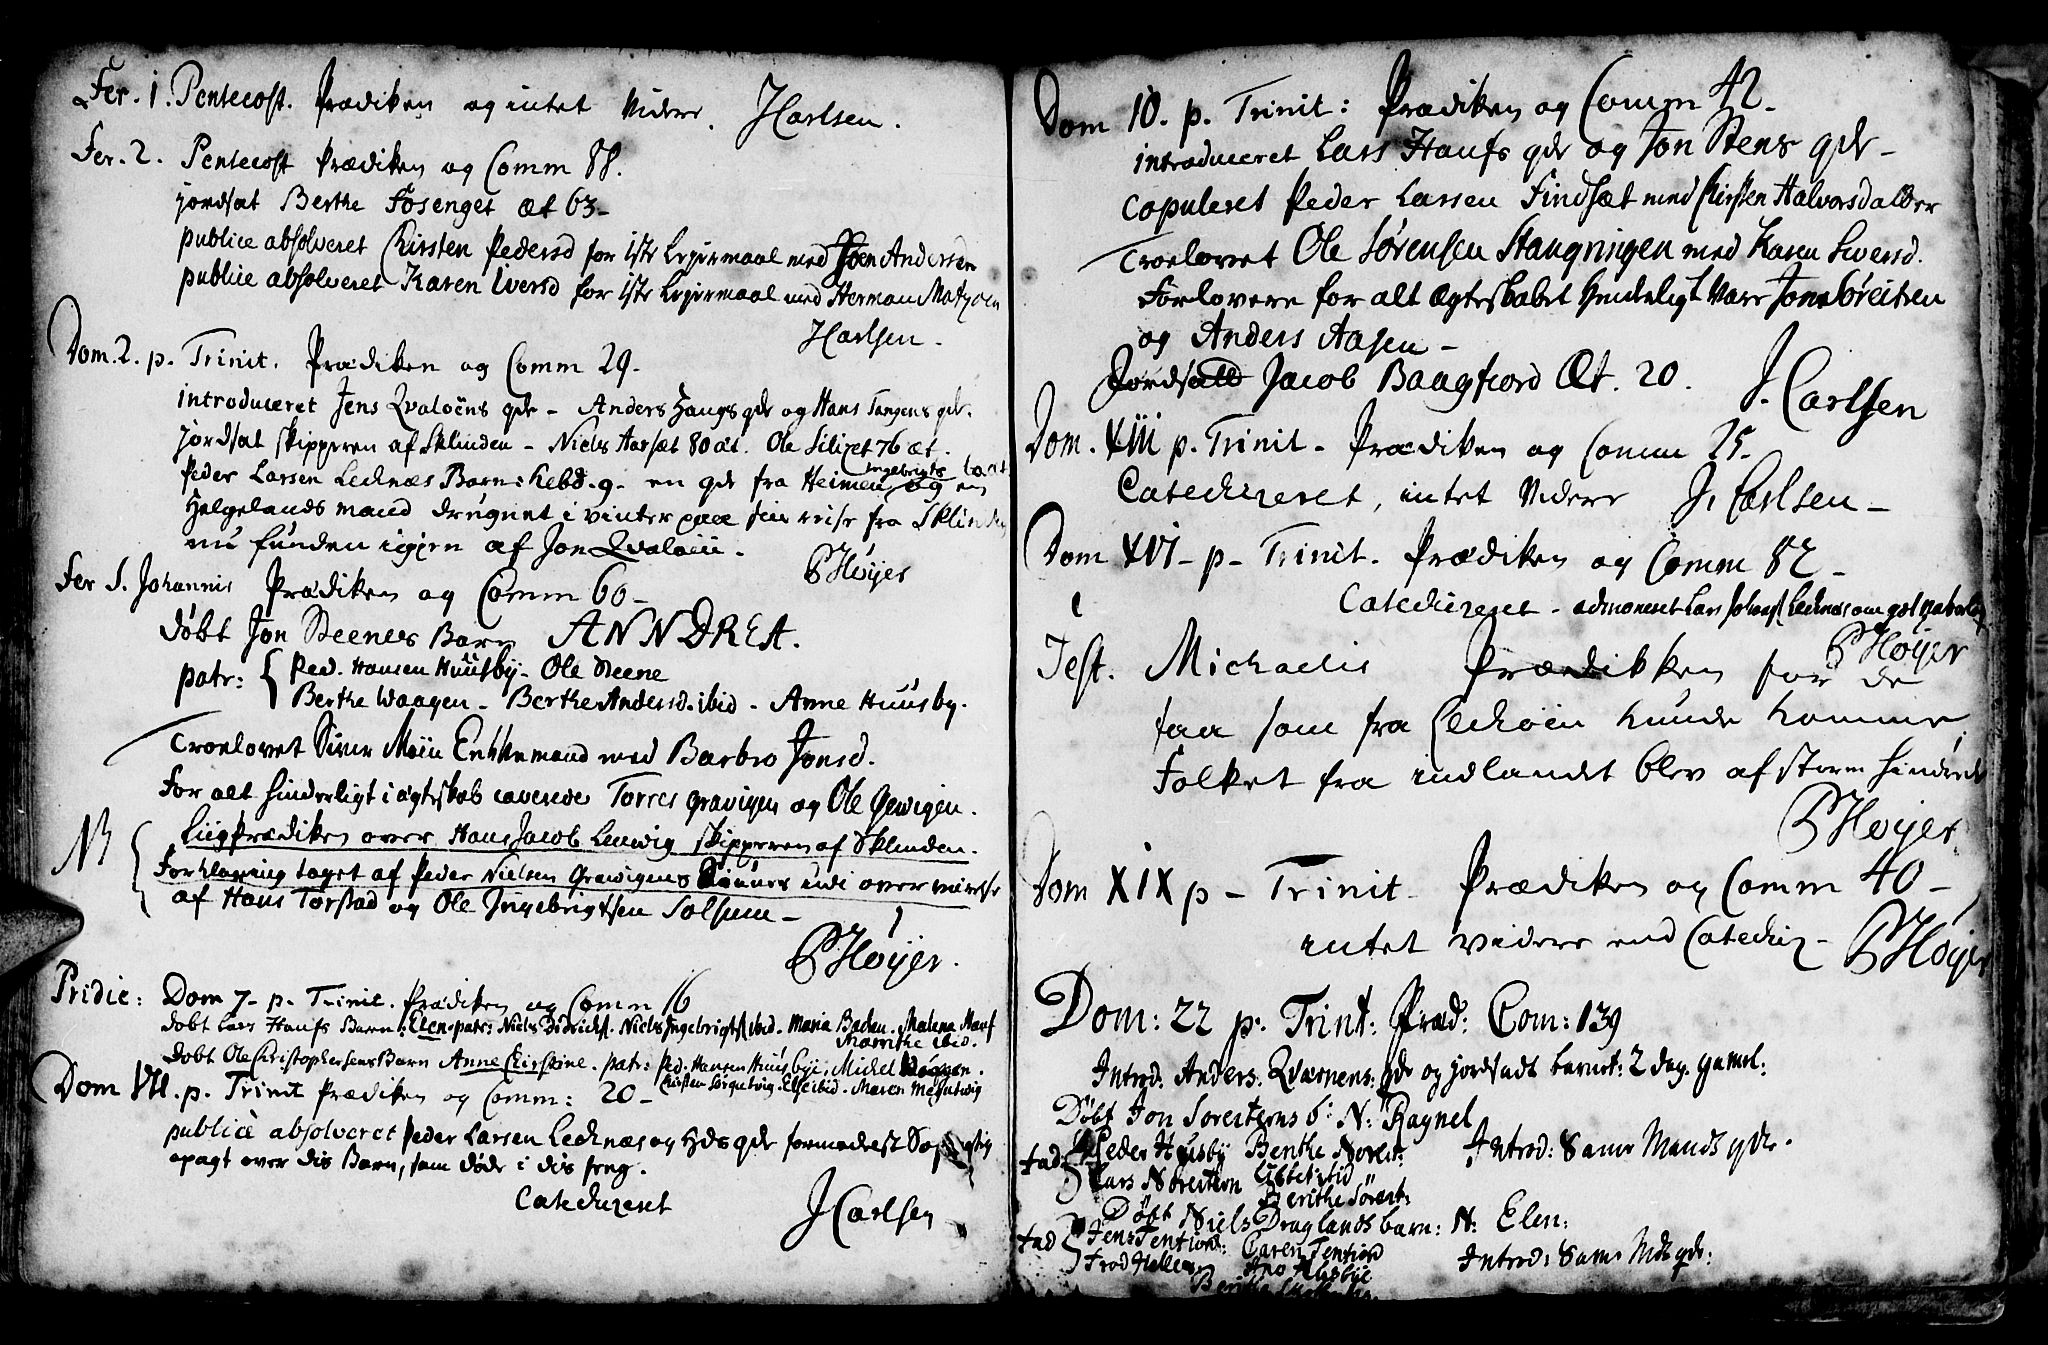 Fer. 1. Pentecost. Prædiken og intet videre. JCarlsen.
Fer. 2. Pentecost Prædiken og Comm 88.
jordsat Berthe Fosenget æt 63-
publice absolveret Chirsten Pedersd for 1ste Lejermaal med Joen Andersen
publice absolveret Karen Iversd for 1ste Lejermaal med Herman Matzøen
JCarlsen-
Dom. 2. p. Trinit. Prædiken og Comm 29.
introduceret Jens Qvaløens qde - Anders Haugs qde og Hans Tangens qde.
jordsat skipperen af Sklinden - Niels Aarsæt 80 æt. Ole Silizet 76 æt.
Peder Larsen Lecknæs Barn: hebd. 9. en qde fra Heimen Ingebrigts og en
Helgelands mand drugnet i vinter paa sin reise fra Sklinden
nu funden igjen af Jon Qvaløen.
PHøyer
Fer S. Johannis Prædiken og Comm 60-
døbt Jon Steenes Barn ANNDREA.
patr: { Ped. Hansen Huusby - Ole Steene
Berthe Waagen - Berthe Andersd. ibid - Anne Huusby.
Troelovet Siver Møen Enkkemand med Barbro Jonsd.
For alt hinderligt i ægteskab caverede Torres Gravigen og Ole Gravigen.
NB { Liigprædiken over Hans Jacob Leuvig skipperen af Sklinden.
Forklaring taget af Peder Nielsen Gravigens
af Hans Torstad og Ole Ingebrigtsen Solsem-
PHøyer.
Pridie: Dom 7- p- Trinit. Prædiken og Comm 16
døbt Lars Haufs Barn: Elen. patr: Niels Didrichs. Niels Ingebrigts ibid. Maria Baden. Malena Hauf
Marrithe ibid.
døbt Ole Christophersens Barn Anne Chirstine. patr: Ped. Hansen Huusbye, Michel
Dom VII. p. Trinit Prædiken og Comm: 20- Chirsten Else ibid. Maren
publicè absolveret Peder Larsen Lecknæs og Hds qde formedelst
apagt over dis Barn, som døde i dis seng.
Catechizeret JCarlsen
Dom 10. p. Trinit: Prædiken og Comm 42-
introduceret Lars Haufs qde og Jon Stens qde-
Copuleret Peder Larsen Findsæt med Chirsten Halvorsd
Troelovet Ole Sørensen Stangningen med Karen Siversd.
Forlovere for alt ægteskabet hinderligt vare Jon Sørensen
og Anders Aasen-
Jordsatt Jacob Baagfiord Æt. 20.
J. Carlsen
Dom. XIII p. Trinit- Prædiken og Comm 25-
Catechizeret, intet videre J. Carlsen-
Dom XVI- p- Trinit. Prædiken og Comm 82-
Catechizeret - admoneret Lars Lecknæs om
PHøyer
Fest. Michaelis Prædikken for de
faa som fra Leckøen kunde komme
Folket fra indlandet blev af storm hindrede
PHøyer
Dom XIX p- Trinit- Prædiken og Comm 40-
intet videre end Catechiz- PHøyer
Dom: 22 p. Trint: Præd: Com: 139
Introd. Anders. Qværnens. qde og jordsadt barnet: 2 dag. gamel:
Døbt Jon Soresterns b: N: Ragnel
Fad { Peder Husby Benthe Introd: Same Mands qde.
Lars Lisbet ibid
Berithe Sørest:
Døbt Niels Draglands barn: N: Elen:
Fad { Jens Tentiord: Caren Tentiord Introd: Same Mds qde:
Ane Husbye